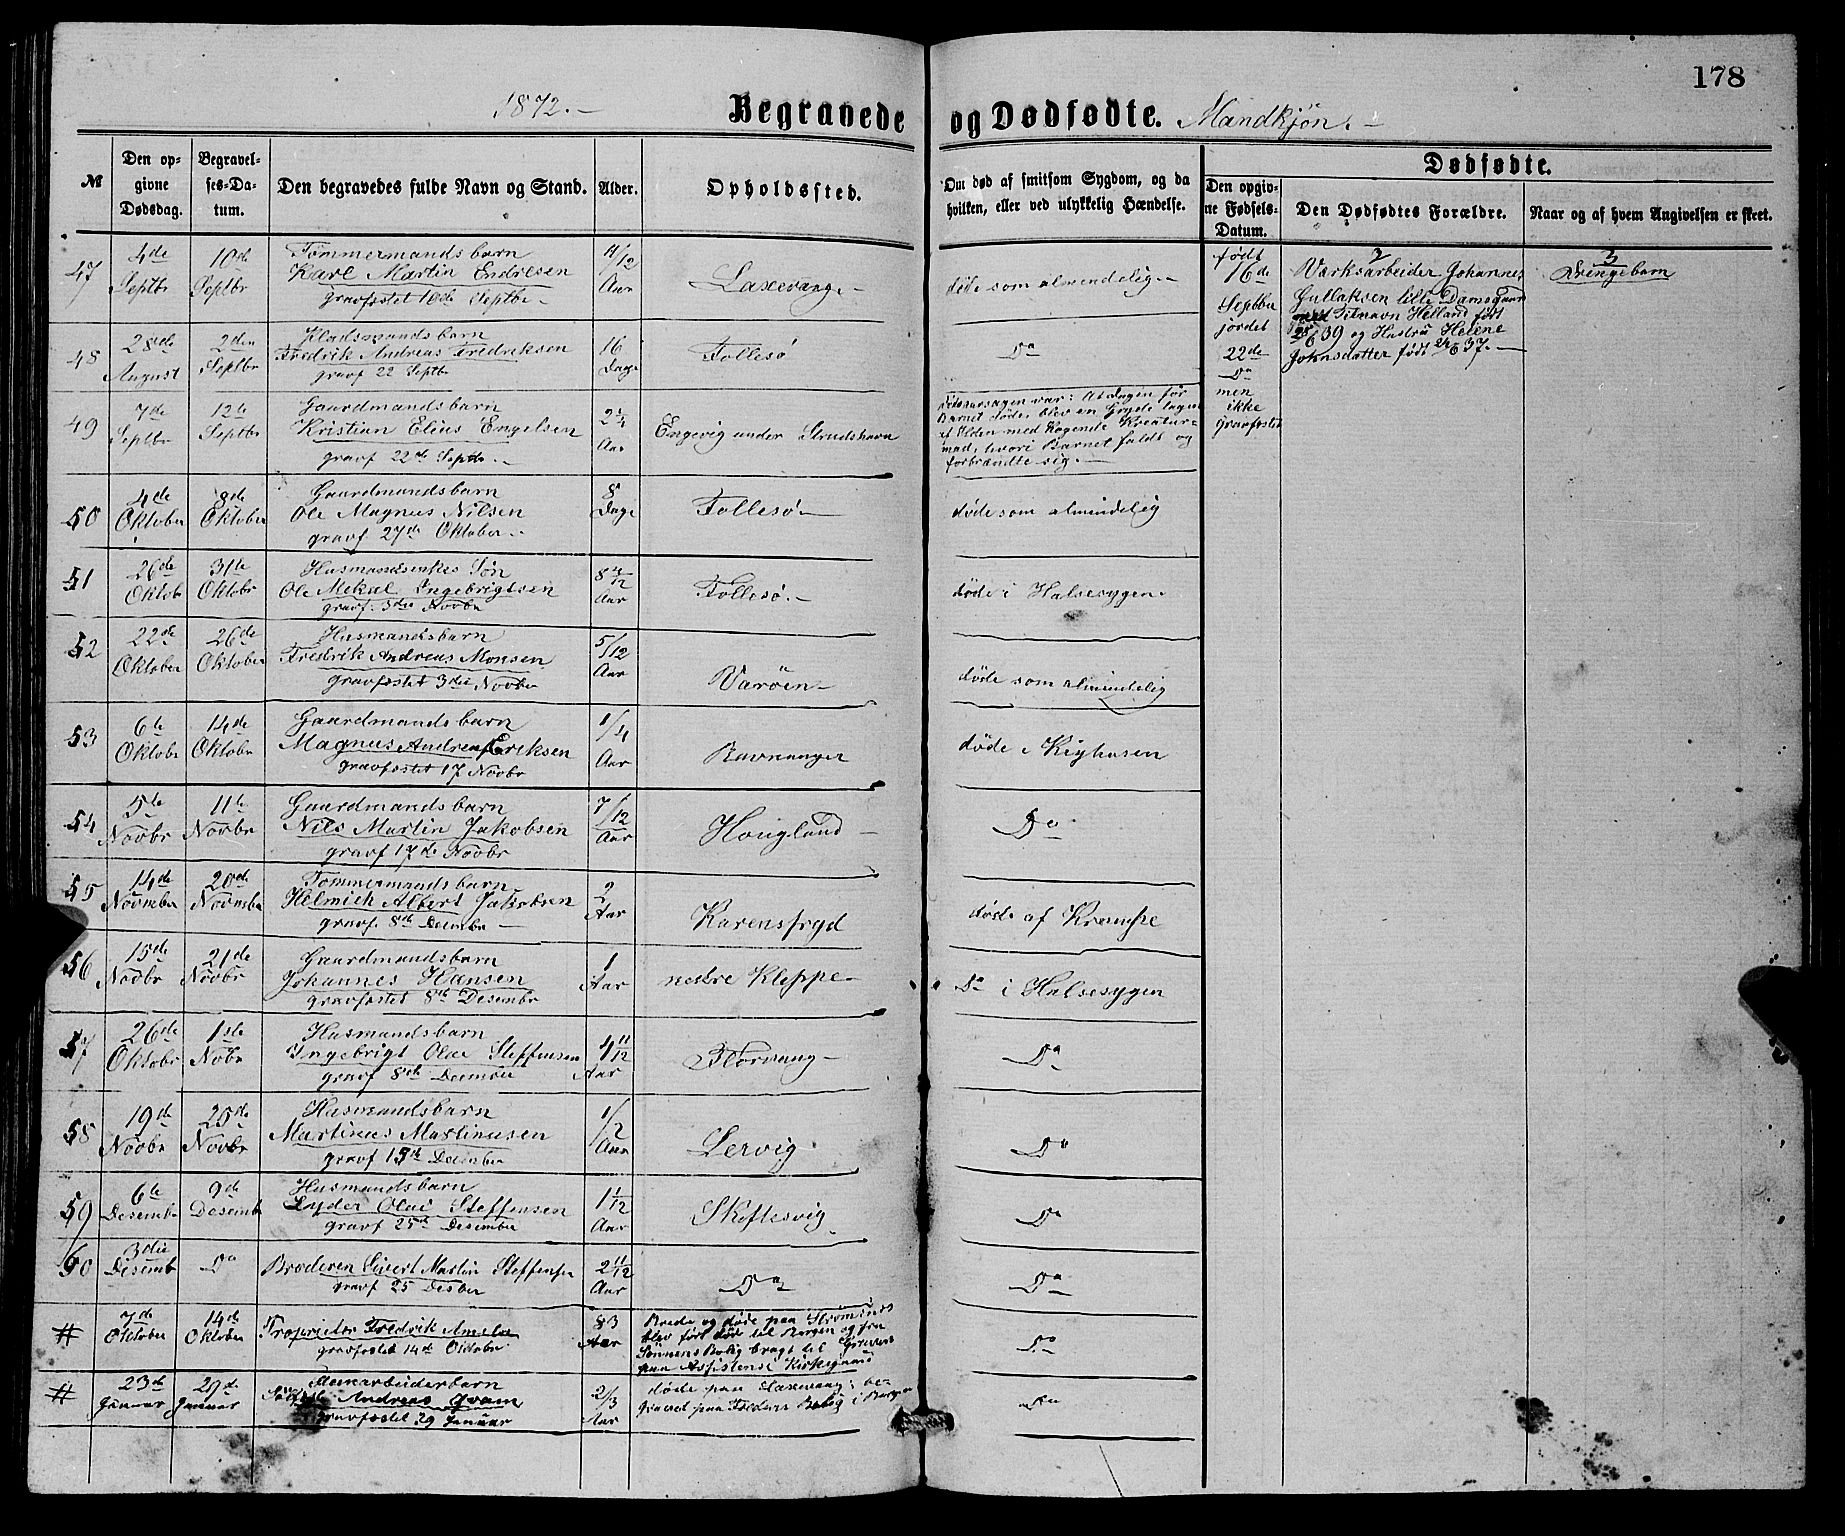 178
1872.-
Begravede og Dødfødte. Mandkjøn.-
№
Den opgivne Dødsdag.
Begravelses-Datum.
Den begravedes fulde Navn og Stand.
Alder.
Opholdssted.
Om død af smitsom Sygdom, og da
hvilken, eller ved ulykkelig Hændelse.
Dødfødte.
Den opgivne Fødsels-Datum.
Den Dødfødtes Forældre.
Naar og af hvem Angivelsen er skeet.
47
4de Septbr
10de Septbr
Tømmermandsbarn
Karl Martin Endresen
gravfæstet 10de Septbr.
11/12 Aar
Laxevaag.-
døde som almindelig.-
48
28de August
2den Septbr
Fredrik Andreas Fredriksen
gravf 22 Septbr
16 Dage
Follesö
Do
49
7de Septbr
12te Septbr
Gaardmandsbarn
Kristian Elius Engelsen
gravf 22de Septbr.-
2 1/4 Aar
Engevig under Strudshavn
Dødsaarsagen var: At dagen før
Barnet døde, blev en Gryde tagen
af Ilden med kogende Kreatur=
mad, hvori Barnet faldt og
forbrændte sig.-
50
4de Oktober
8de Oktober
Gaardmandsbarn
Ole Magnus Nilsen
gravf 27de Oktober.-
8 Dage
Follesö.-
døde som almindelig
51
26de Oktob
31te Oktobr
Husmandsenkes Søn
Ole Mekal Ingebrigtsen
gravf. 3die Novbr
8 Aar
Follesö.-
døde i Halsesygen.
52
22de Oktober
26de Oktober
Husmandsbarn
Fredrik Andreas Monsen
gravfæstet 3die Novbr
5/12 Aar
Varöen-
døde som almindelig
53
6te Oktobr
14de Oktobr
Gaardmandsbarn
Magnus Andreas Eriksen
gravfæstet 17 Novbr
1/4 Aar
Ravnanger
døde i Kighosen
54
5te Novbr
11te Novbr
Gaardmandsbarn
Nils Martin Jakobsen
gravf 17de Novbr
7/12 Aar
Hougland
Do
55
14de Novmbr
20de Novmbr
Tømmermandsbarn
Helmich Albert Jakobsen
gravf 8de Decembr
2 Aar
Karensfryd
døde af Krampe
56
15de Novbr
21de Novbr
Gaardmandsbarn
Johannes Hansen
gravfæstet 8de Desembr
1 Aar
nedre Kleppe-
Do i Halsesygen
57
26de Oktobr
1ste Nobr
Husmandsbarn
Ingebrigt Olai Steffensen
gravf 8de Decmber
4 11/12 Aar
Florvaag-
Do
58
19de Novbr
25de Novbr
Husmandsbarn
Martinus Martinusen
gravf 15de Decmber
1/2 Aar
Lervig
Do
59
6te Desembr
9de Desembr
Husmandsbarn
Lyder Olai Steffensen
gravf 25de Desember
1 1/12 Aar
Skiftesvig
Do
60
3die Desemb
Do
Broderen Sivert Martin Steffensen
gravf 25 Desber
2 11/12 Aar
Do
Do
#
7de Oktober
14de Oktober
Proprietær Fredrik Ameln
gravfæstet 14de Oktobr
83 Aar
Boede og døde paa Strømsnes
blev ført død til Bergen og fra
Sønnens Bolig bragt til Graven
paa Assistense Kirkegaard
Do
#
23de Januar
29de Januar
Andreas Gram
gravfæstet 29 Januar
2/3 Aar
døde paa Laxevaag; be-
graved paa Faderens Bolig i Bergen
Do
født
16de
Septbr
jordet
22de
Do
men
ikke
gravfæstet
Værksarbeider Johannes
Gullaksen lille Damsgaard
med Tilnavn Helland født
25/6 39 og Hustru Helene
Johnsdatter født 24/6 37.-
3
Drengebarn